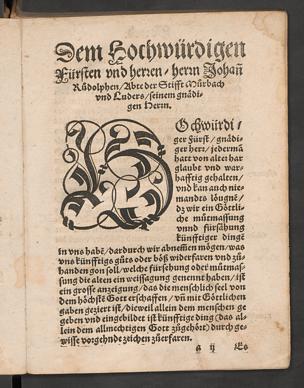 Dem Hochwürdigen
Fürsten vnd herren / herrn Johañ
Růdolphen / Abte der Stifft Můrbach
vnd Luders / seinem gnådi-
gen Herrn.
HOchwürdi /
ger Fürst / gnådi-
ger herr / jedermā
hatt von alter har
glaubt vnd war-
hafftig gehalten /
vnd kan auch nie-
mandes lőugnē /
dz wir ein Gőttli-
che můtmassung
vnnd fürsåhung
künfftiger dinge
in vns habē / dardurch wir abnemen mőgen / was
vns künfftigs gůts oder bőß widerfaren vnd zů-
handen gon soll / welche fürsehung oder můtmas-
sung die alten ein weissagung genennt haben / ist
ein grosse anzeigung / das die menschlich seel von
dem hőchstē Gott erschaffen / vñ mit Gőttlichen
gaben geziert ist / dieweil allein dem menschen ge
geben vnd eingebildet ist künfftige ding (das al-
lein dem allmechtigen Gott zůgehőrt) durch ge-
wisse vorgehndt zeichen zůerfaren.
a ij Es